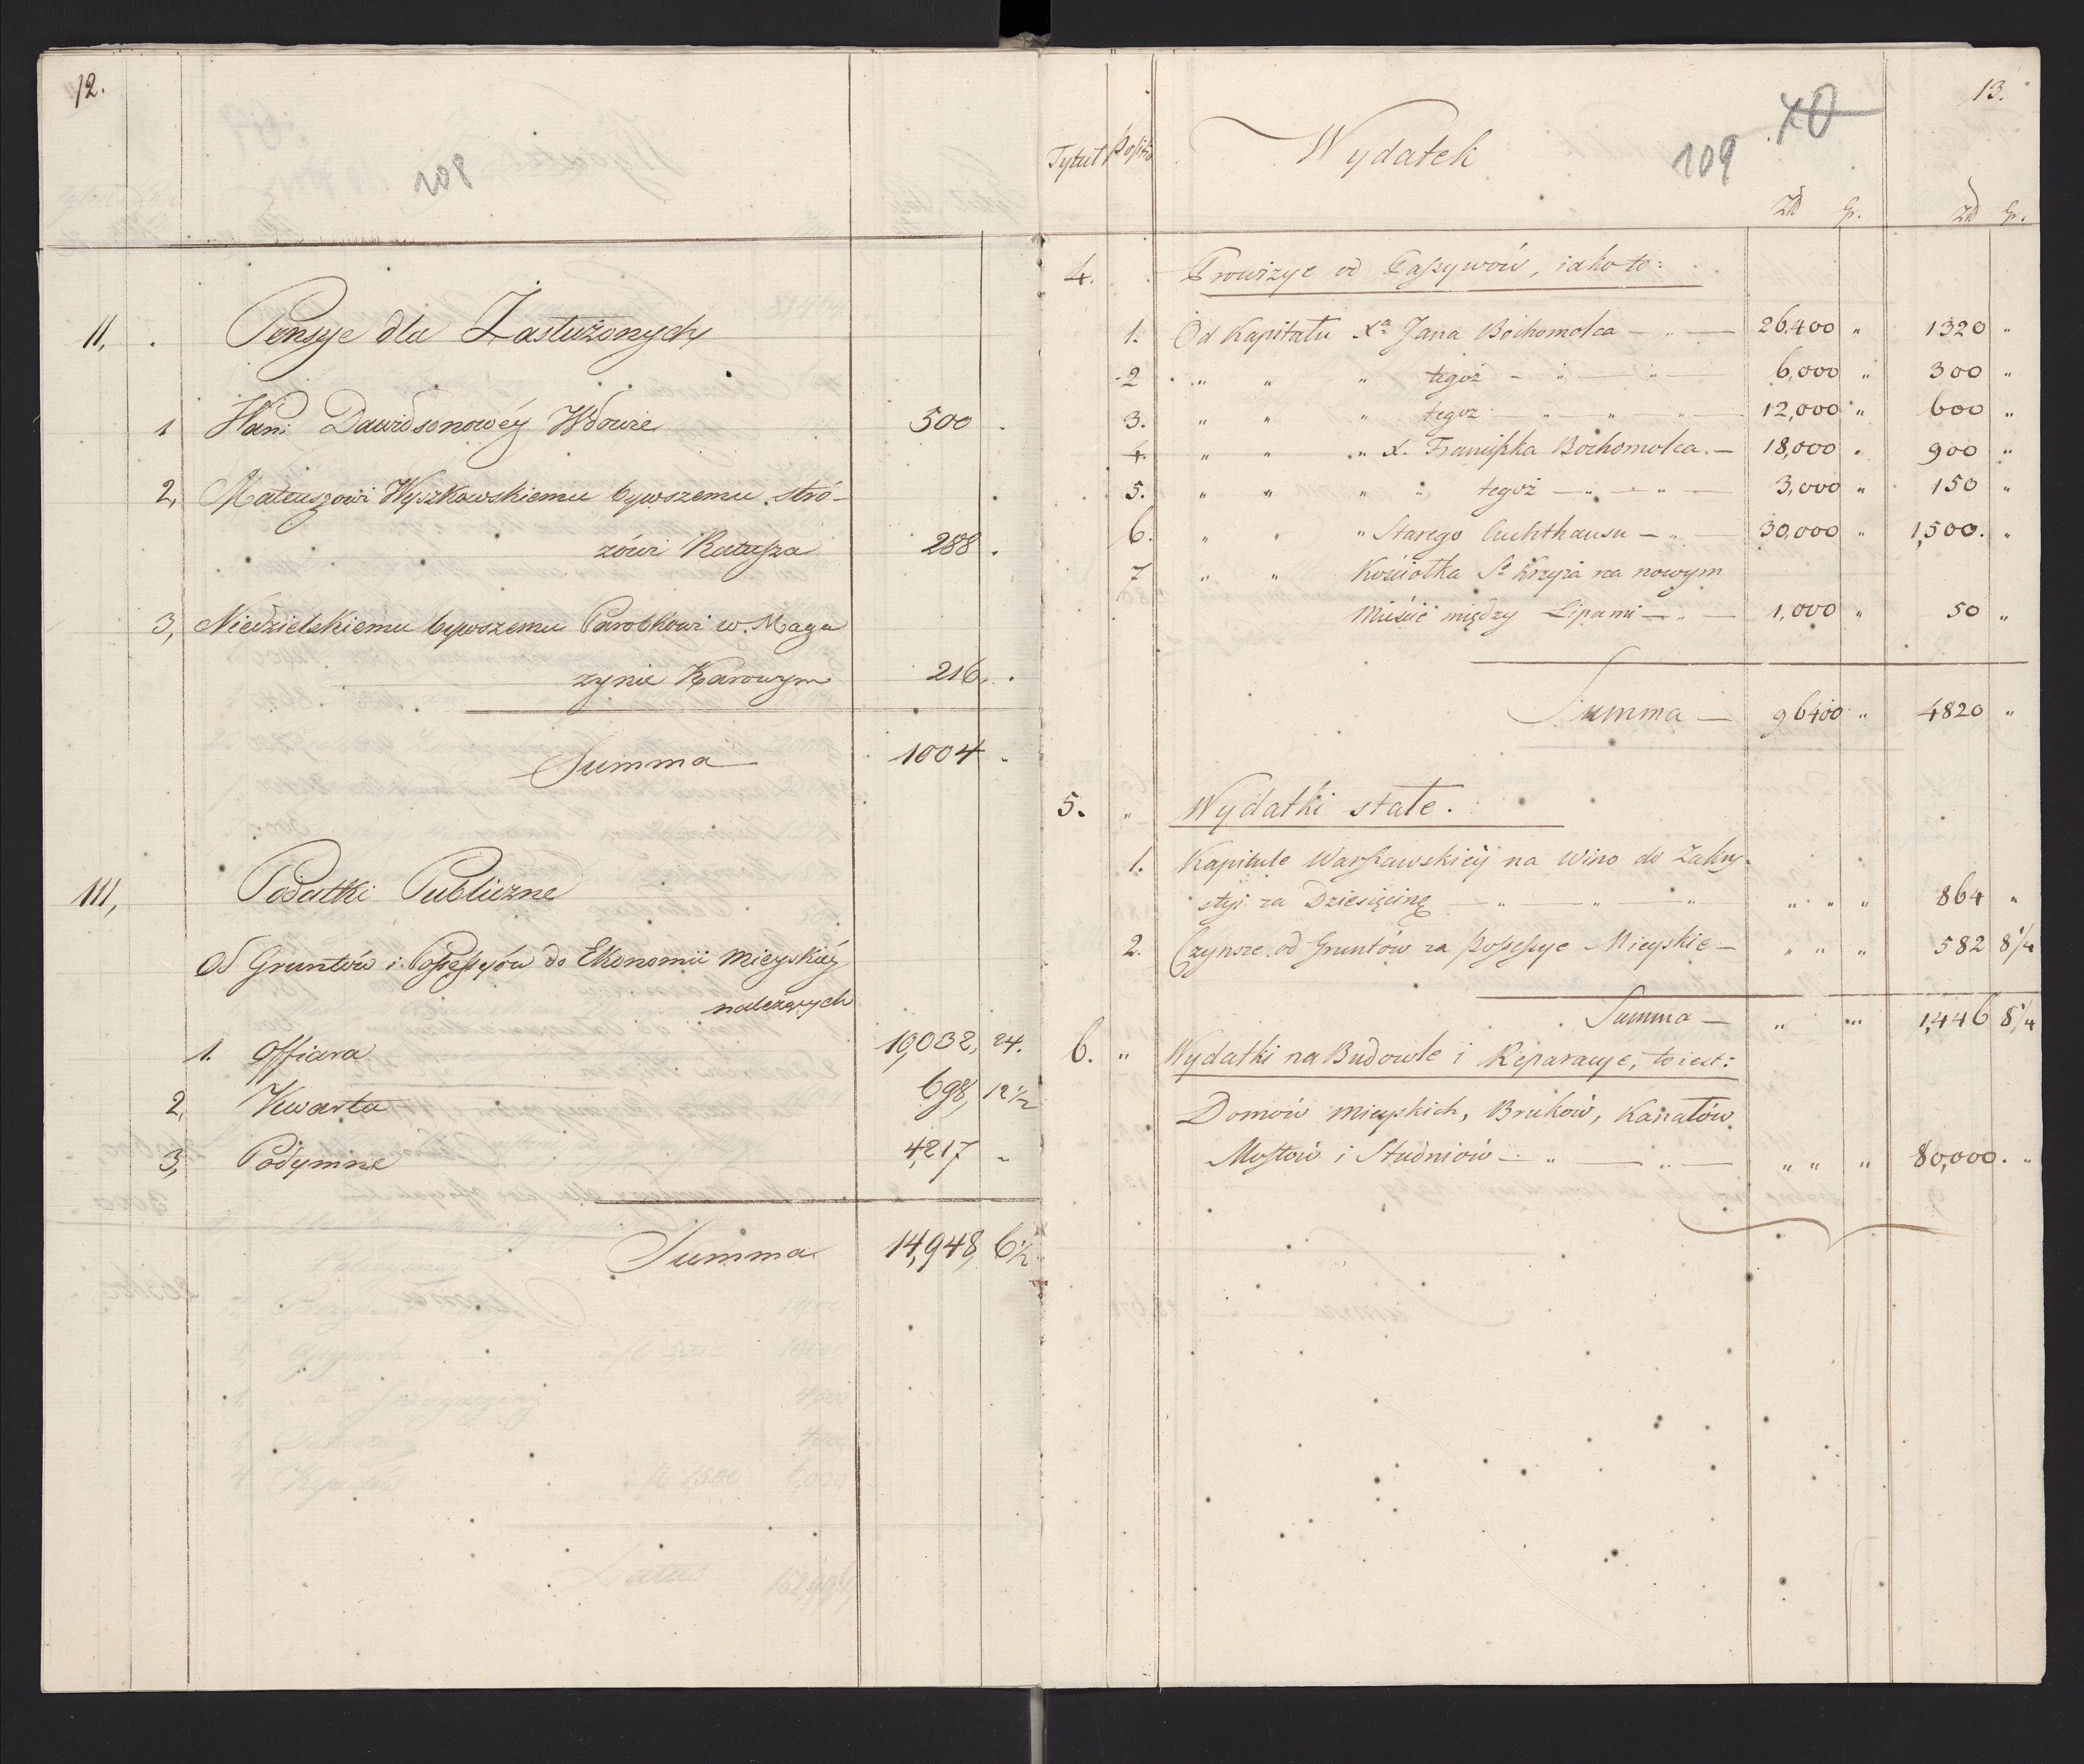 12.
108
II, . Pensye dla Zasłużonych
1 Pani Dawidsonowéy Wdowie 500 .
2, Mateuszowi Wyszkowskiemu bywszemu stró-
żowi Ratusza 288 .
3, Niedzielskiemu bywszemu Parobkowi w Maga
zynie Karowym 216, .
Summa 1004 .
III, Podatki Publiczne
Od Gruntów i Possessyów do Ekonomii Mieyskiéy
należących
1. Offiara 10,032, 24.
2, Kwarta 698, 12 1/2
3, Podymne 4,217 "
Summa 14,948, 6 1/2
13.
40
109
Tytuł Wydatek
Zł Gr. Zł Gr.
4. Prowizye od Passywów, iako to:
1. Od Kapitału Xa Jana Bochomolca — " — 26,400 " 1320 "
2 " " " tegoż — " — " — 6,000 " 300 "
3. " " " tegoż — " — " — " — 12,000 " 600 "
4. " " " X. Franciszka Bochomolca — 18,000 " 900 "
5. " " " " tegoż — " — " — 3,000 " 150 "
6. " " " Starego Cuchthausu — " — 30,000 " 1,500. "
7 " " Kościołka So Krzyża na nowym
Mieście między Lipami — " — 1,000 " 50 "
Summa — 96400 " 4820 "
5. " Wydatki stałe.
1. Kapitule Warszawskiéy na Wino do Zakry-
styi za Dziesięcinę — " — " — " — " " " 864 "
2. Czynsze od Gruntów za Possessye Mieyskie — " " " 582 8 1/4
Summa — " " 1,446 8 1/4
6. " Wydatki na Budowle i Reparacye, to iest:
Domów mieyskich, Bruków, Kanałów
Mostów i Studniów — " — " — " " " 80,000. "